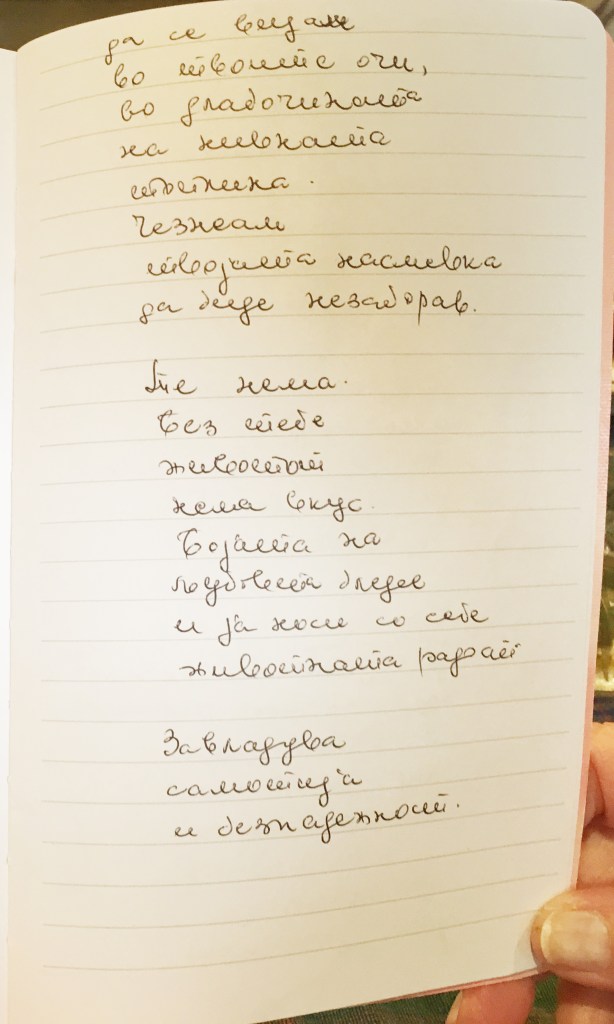 да се видам
во твоите очи,
во длабочината
на нивната
топлина.
Чезнеам
твојата насмевка
да биде незаборав.
Те нема.
Без тебе
животот
нема вкус.
Бојата на
љубовта бледее
и ја носи со себе
животната радост
Завладува
самотија
и безнадежност.